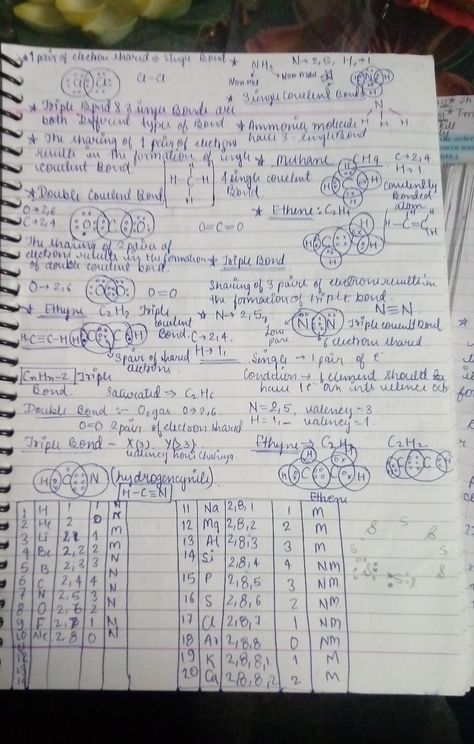 ★ 1 pair of electron shared → Single Bond ★
NH₃ N→2,5, H→1
Cl Cl Cl-Cl
Non metal Non metal H N H
★ 3 single Covalent Bond
★ Triple Bond & 3 single Bonds are both Different types of Bond.
★ Ammonia molecule have 3 - single Bond
N H H
★ The sharing of 1 pair of electron results in the formation of single covalent Bond.
★ Methane → CH₄ C→2,4 H→1
H-C-H H H
4 single covalent Bond
covalently Bonded atom
★ Double Covalent Bond
O→2,6
C→2,4
O C O
O=C=O
★ Ethene: C₂H₄
H C C H H H
H-C=C H H
The sharing of 2 pairs of electrons results in the formation of double covalent bond.
★ Triple Bond
O→2,6 O O O=O
Sharing of 3 pairs of electrons results in the formation of triple bond.
★ Ethyne C₂H₂ Triple covalent Bond
H-C≡C-H H C C H
C→2,4.
H→1,
3 pair of shared electrons
★ N→2,5, N N N≡N
lone pair
Triple covalent Bond
6 electrons shared
Single → 1 pair of e⁻
CnHn-2 Triple Bond.
Saturated ⇒ C₂H₆
Condition → 1 element should be have 1e⁻ in its valence
Double Bond :- O₂ gas O→2,6.
O=O 2 pairs of electron shared
N=2,5, valency=3.
H=1, valency=1.
Triple Bond -
Ethene → C₂H₄
C₂H₂
H C N (hydrogen cynide)
H-C≡N
H C C H H H
H C C H
Ethene
1 H 1 1 N
2 He 2 0 N
3 Li 2,1 1 M
4 Be 2,2 2 M
5 B 2,3 3 N
6 C 2,4 4 N
7 N 2,5 3 N
8 O 2,6 2 N
9 F 2,7 1 N
10 Ne 2,8 0 N
11
12
13
14
11 Na 2,8,1 1 M
12 Mg 2,8,2 2 M
13 Al 2,8,3 3 M
14 Si 2,8,4 4 NM
15 P 2,8,5 3 NM
16 S 2,8,6 2 NM
17 Cl 2,8,7 1 NM
18 Ar 2,8,8 0 NM
19 K 2,8,8,1 1 M
20 Ca 2,8,8,2 2 M
S S S S S